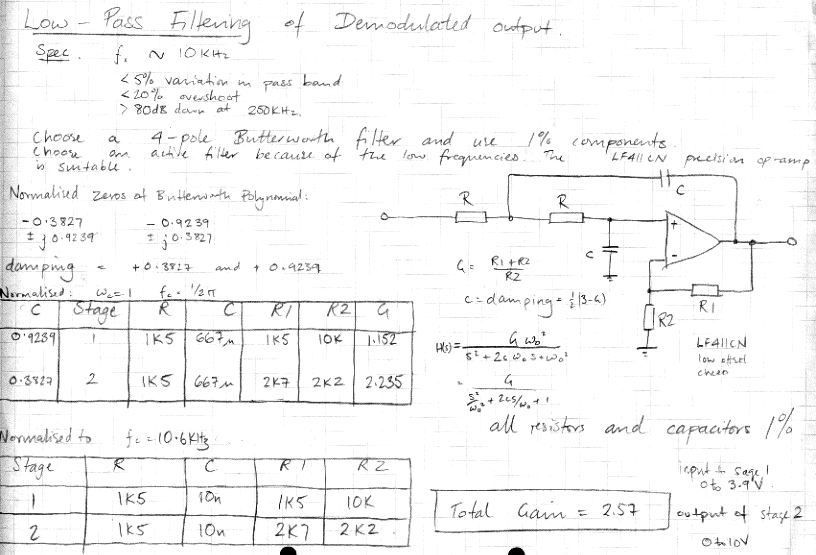 Low-Pass Filtering of Demodulated output.
Spec. fc ~ 10KHz
<5% variation in pass band
<20% overshoot
>80dB down at 250KHz.
Choose a 4-pole Butterworth filter and use 1% components.
Choose an active filter because of the low frequencies. The LF411CN precision op-amp
is suitable.
Normalised zeros of Butterworth Polynomial:
-0.3827 -0.9239
± j0.9239 ± j0.3827
damping = +0.3827 and +0.9239
Normalised: ωc=1 fc = 1/2π
C Stage R C R1 R2 G
0.9239 1 1K5 667μ 1K5 10K 1.152
0.3827 2 1K5 667μ 2K7 2K2 2.235
Normalised to fc = 10.6KHz
Stage R C R1 R2
1 1K5 10n 1K5 10K
2 1K5 10n 2K7 2K2
R
R
C
C
+
-
R1
R2
G = R1+R2 / R2
c = damping = ½(3-G)
H(s) = G ω₀² / s² + 2c ω₀ s + ω₀²
= G / s²/ω₀² + 2cs/ω₀ + 1
LF411CN
low offset
cheap
all resistors and capacitors 1%
Total Gain = 2.57
input to sage 1
0 to 3.9V
output of stage 2
0 to 10V